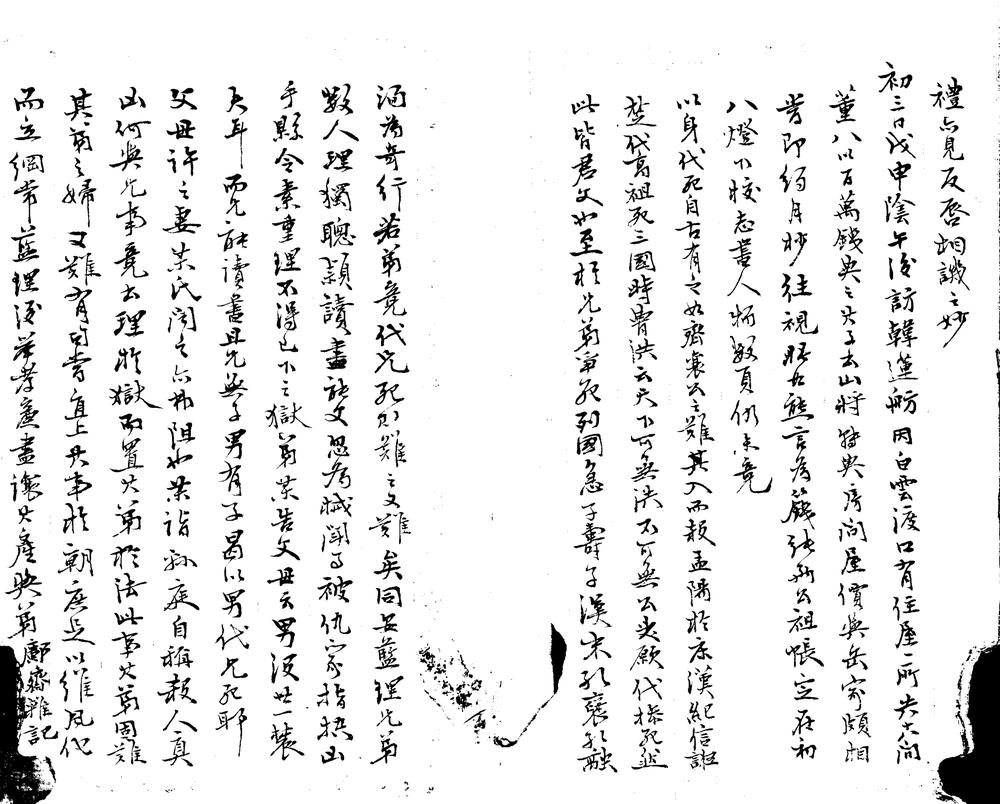 禮亦見反唇相譏之妙
初三日戊申陰午後訪韓蓮舫因白雲渡口有住屋一所共六间
董八以百萬錢典之其子去山將轉典房间屋價與岳家頗相
若即约月杪往視晤古熊言為籛張齋公祖帳定在初
八燈下校志書人物数頁仍未竟
以身代死自古有之如齊襄公之難其入而殺孟陽於床漢紀信誑
楚代高祖死三國時曹洪云天下可無洪不可無公其願代操死然
此皆君父也至於兄弟争死列國急子壽子漢末孔褒孔融
洵為奇行若弟竟代兄死尔難之又難矣同安藍理兄弟
数人理獨聰颖讀書能文忽為械闘事被仇家指控山
手縣令素重理不得已下之獄弟某告父母云男没世一裝
夫耳而兄能讀書且兄無子男有子曷以男代兄死耶
父母许之妻某氏闻之亦弗阻也某詣縣庭自稱殺人真
凶何與兄事竟去理於獄而置其弟於法此事其弟固難
其弟之婦又難有司當直上其事於朝庶足以維風化
而立綱常藍理後举孝廉盡讓其產與弟 鄺齋雜記